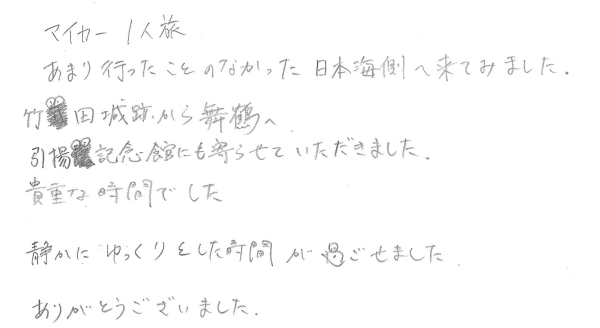 マイカー 1人旅
あまり行ったことのなかった日本海側へ来てみました。
竹田城跡から舞鶴へ
引揚記念館にも寄らせていただきました。
貴重な時間でした
静かに ゆっくりとした時間 が 過ごせました
ありがとうございました。